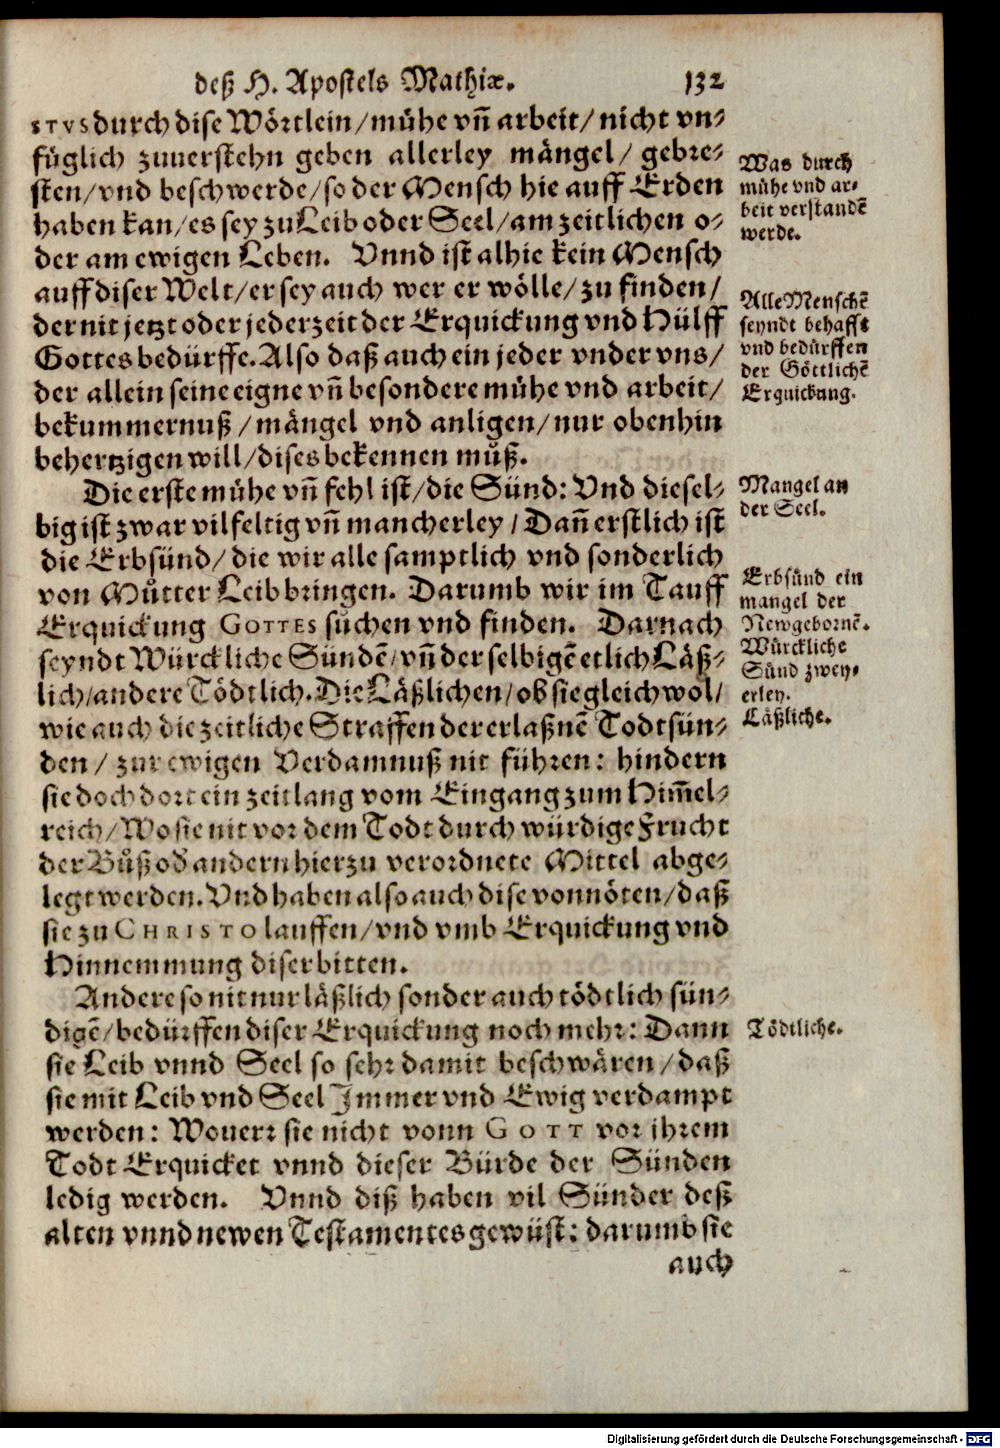 deß H. Apostels Mathiæ. 132
STVS durch dise Wörtlein/mühe vn̄ arbeit/nicht vn⸗
füglich zuuerstehn geben allerley mängel/ gebre⸗
sten/vnd beschwerde/so der Mensch hie auff Erden
haben kan/es sey zu Leib oder Seel/am zeitlichen o⸗
der am ewigen Leben. Vnnd ist alhie kein Mensch
auff diser Welt/er sey auch wer er wölle/zu finden/
der nit jetzt oder jederzeit der Erquickung vnd Hülff
Gottes bedürffe. Also daß auch ein jeder vnder vns/
der allein seine eigne vn̄ besondere mühe vnd arbeit/
bekummernuß/mängel vnd anligen/nur obenhin
behertzigen will/dises bekennen můß.
Was durch
mühe vnd ar⸗
beit verstandē
werde.
Alle Menschē
seyndt behafft
vnd bedürffen
der Göttlichē
Erquickung.
Die erste mühe vn̄ fehl ist/die Sünd: Vnd diesel⸗
big ist zwar vilfeltig vn̄ mancherley/Dan̄ erstlich ist
die Erbsünd/die wir alle samptlich vnd sonderlich
von Můtter Leib bringen. Darumb wir im Tauff
Erquickung GOTTES sůchen vnd finden. Darnach
seyndt Würckliche Sündē/vn̄ der selbigē etlich Läß⸗
lich/andere Tödtlich. Die Läßlichen/ob sie gleich wol/
wie auch die zeitliche Straffen der erlaßnē Todtsün⸗
den/ zur ewigen Verdamnuß nit führen: hindern
sie doch dort ein zeitlang vom Eingang zum Him̄el⸗
reich/Wo sie nit vor dem Todt durch würdige Frucht
der Bůß od' andern hierzu verordnete Mittel abge⸗
legt werden. Vnd haben also auch dise vonnöten/daß
sie zu CHRISTO lauffen/vnd vmb Erquickung vnd
Hinnemmung diser bitten.
Mangel an
der Seel.
Erbsünd ein
mangel der
Newgebornē.
Würckliche
Sünd zwey⸗
erley.
Läßliche.
Andere so nit nur läßlich sonder auch tödtlich sün⸗
digē/bedürffen diser Erquickung noch mehr: Dann
sie Leib vnnd Seel so sehr damit beschwären/daß
sie mit Leib vnd Seel Jmmer vnd Ewig verdampt
werden: Wouerr sie nicht vonn GOTT vor ihrem
Todt Erquicket vnnd dieser Bürde der Sünden
ledig werden. Vnnd diß haben vil Sünder deß
alten vnnd newen Testamentes gewüst: darumb sie
auch
Tödtliche.
Digitalisierung gefördert durch die Deutsche Forschungsgemeinschaft - DFG